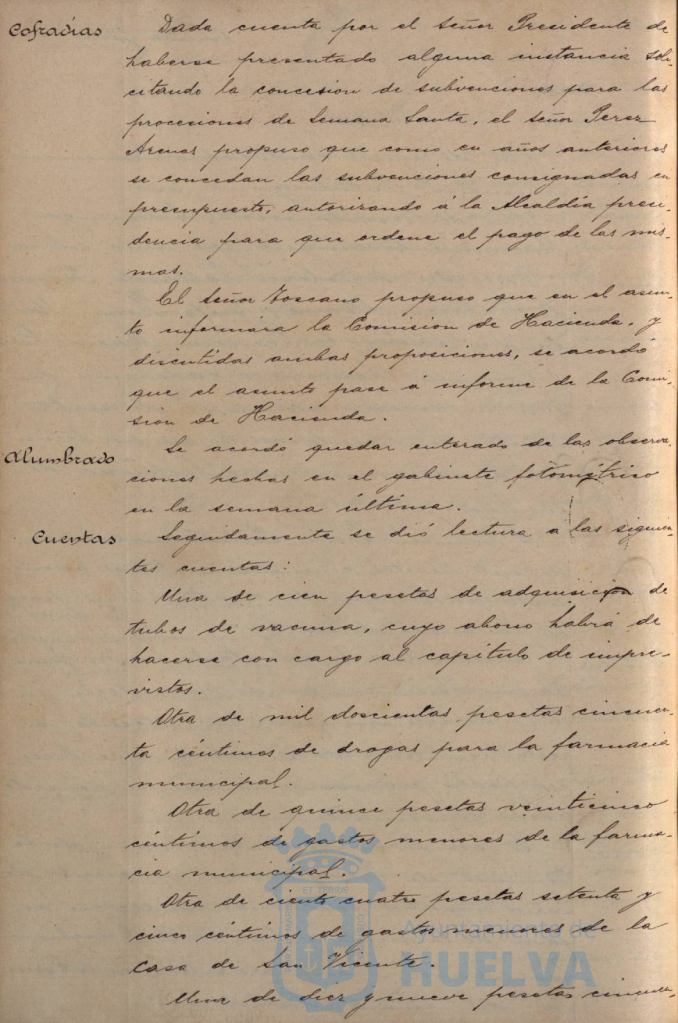 Cofradias
Dada cuenta por el señor Presidente de
haberse presentado alguna instancia soli-
citando la concesion de subvenciones para las
procesiones de Semana Santa, el señor Perez
Arenas propuso que como en años anteriores
se concedan las subvenciones consignadas en
presupuesto, autorizando á la Alcaldía presi-
dencia para que ordene el pago de las mis-
mas.
El señor Toscano propuso que en el asun-
to informára la Comision de Hacienda, y
discutidas ambas proposiciones, se acordó
que el asunto pase á informe de la Comi-
sion de Hacienda.
Alumbrado
Se acordó quedar enterado de las observa-
ciones hechas en el gabinete fotométrico
en la semana última.
Cuentas
Seguidamente se dió lectura a las siguien-
tes cuentas:
Una de cien pesetas de adquisicion de
tubos de vacuna, cuyo abono habrá de
hacerse con cargo al capitulo de impre-
vistos.
Otra de mil doscientas pesetas cincuen-
ta céntimos de drogas para la farmacia
municipal.
Otra de quince pesetas veinticinco
céntimos de gastos menores de la farma-
cia municipal.
Otra de ciento cuatro pesetas setenta y
cinco céntimos de gastos menores de la
casa de San Vicente.
Una de diez y nueve pesetas cincuen-
Ayuntamiento de
HUELVA